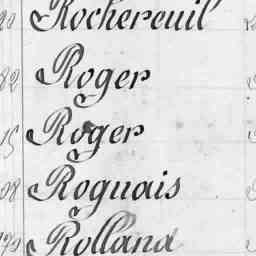 Rochereuil
82 Roger
15 Roger
Roguais
Rolland